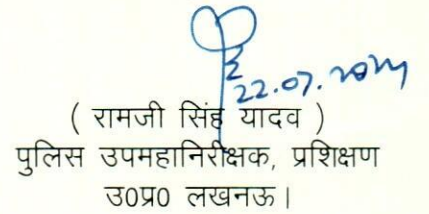 22.07.2024
( रामजी सिंह यादव )
पुलिस उपमहानिरीक्षक, प्रशिक्षण
उ0प्र0 लखनऊ।